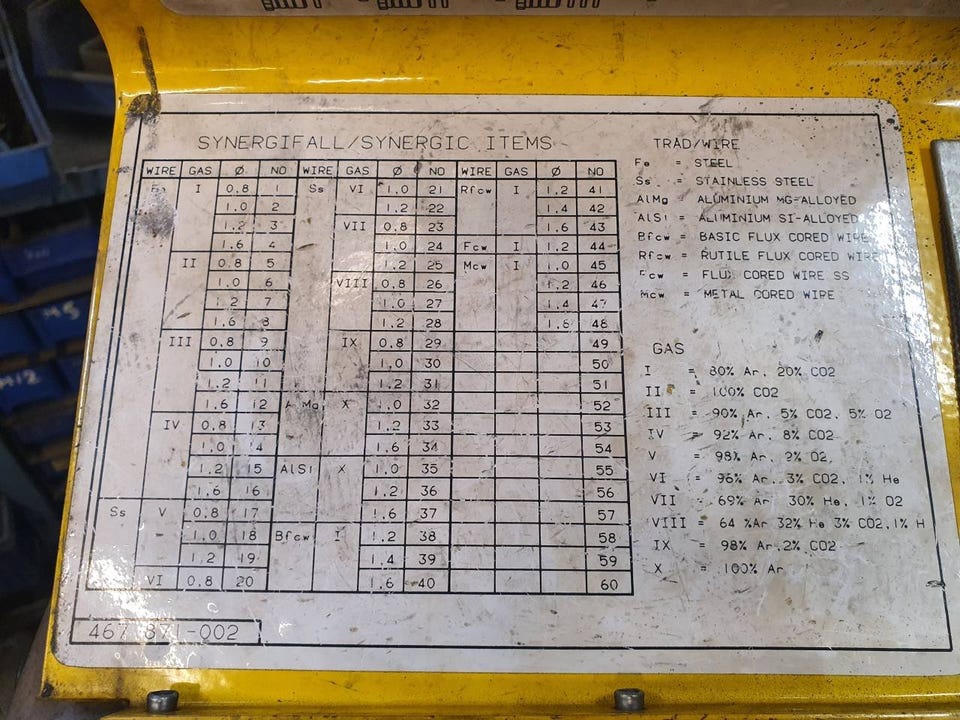 SYNERGIFALL/SYNERGIC ITEMS
WIRE GAS Ø NO WIRE GAS Ø NO WIRE GAS Ø NO
Fe I 0.8 1 Ss VI 1.0 21 Rfcw I 1.2 41
1.0 2 1.2 22 1.4 42
1.2 3 VII 0.8 23 1.6 43
1.6 4 1.0 24 Fcw I 1.2 44
II 0.8 5 1.2 25 Mcw I 1.0 45
1.0 6 VIII 0.8 26 1.2 46
1.2 7 1.0 27 1.4 47
1.6 8 1.2 28 1.6 48
III 0.8 9 IX 0.8 29 49
1.0 10 1.0 30 50
1.2 11 1.2 31 51
1.6 12 AlMg X 1.0 32 52
IV 0.8 13 1.2 33 53
1.0 14 1.6 34 54
1.2 15 AlSi X 1.0 35 55
1.6 16 1.2 36 56
Ss V 0.8 17 1.6 37 57
1.0 18 Bfcw I 1.2 38 58
1.2 19 1.4 39 59
VI 0.8 20 1.6 40 60
467 871-002
TRÅD/WIRE
Fe = STEEL
Ss = STAINLESS STEEL
AlMg = ALUMINIUM MG-ALLOYED
AlSi = ALUMINIUM SI-ALLOYED
Bfcw = BASIC FLUX CORED WIRE
Rfcw = RUTILE FLUX CORED WIRE
Fcw = FLUX CORED WIRE SS
Mcw = METAL CORED WIRE
GAS
I = 80% Ar, 20% CO2
II = 100% CO2
III = 90% Ar, 5% CO2, 5% O2
IV = 92% Ar, 8% CO2
V = 98% Ar, 2% O2
VI = 96% Ar, 3% CO2, 1% He
VII = 69% Ar, 30% He, 1% O2
VIII = 64 %Ar 32% He 3% CO2, 1% H
IX = 98% Ar, 2% CO2
X = 100% Ar
M5
M12